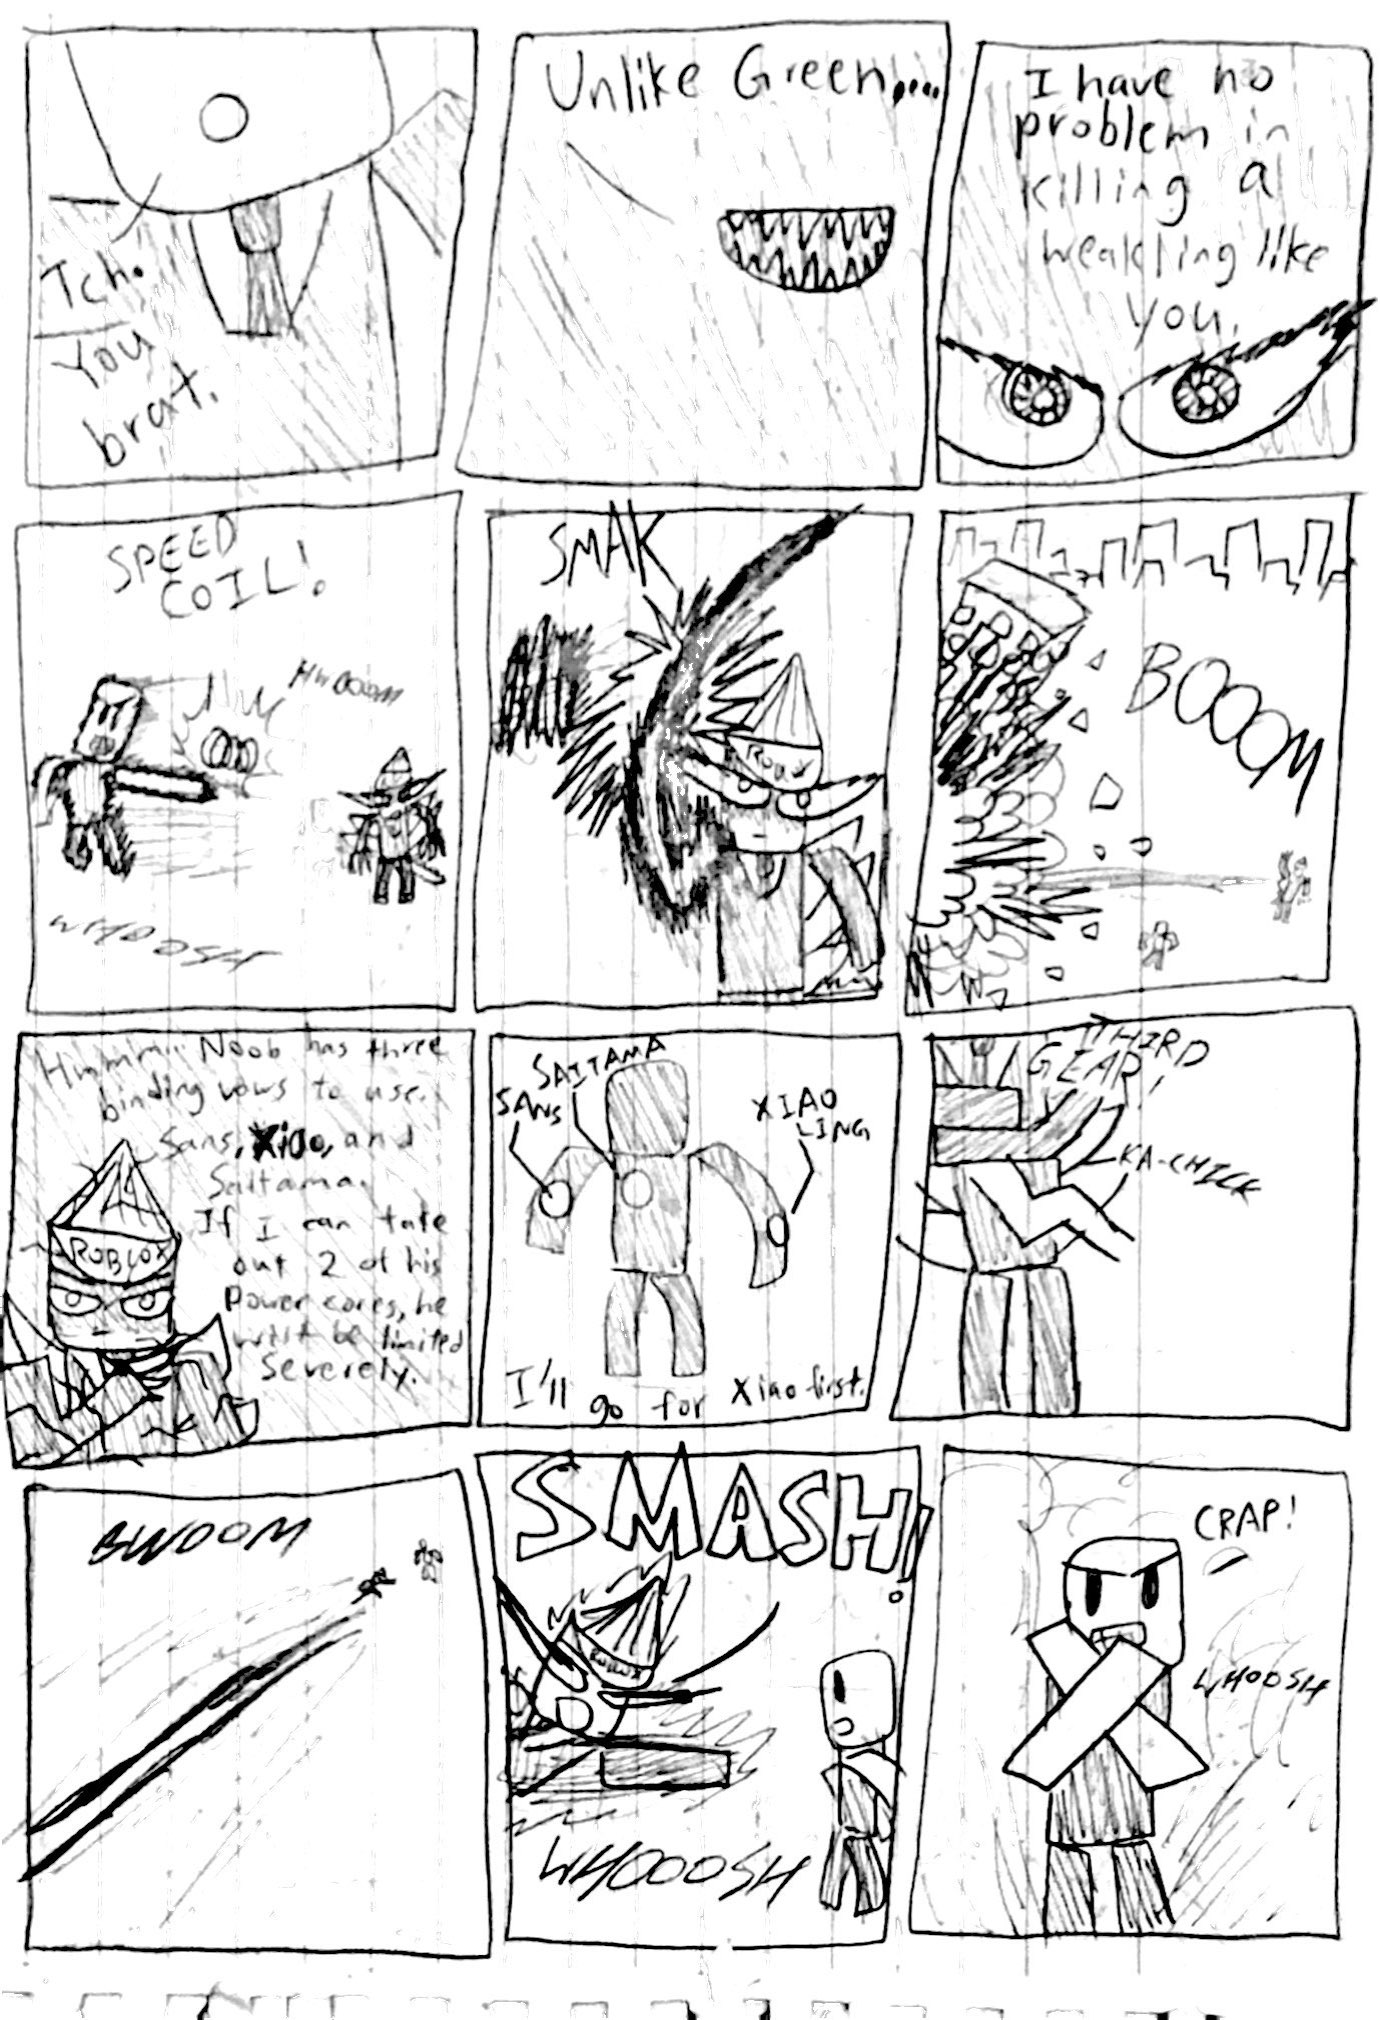 Tch.
You
brat.
Unlike Green.....
I have no
problem in
killing a
weakling like
you.
SPEED
COIL!
HWOOOM
WHOOSH
SMAK
ROBLOX
BOOOM
Hmmm... Noob has three
binding vows to use.
Sans, Xiao, and
Saitama.
If I can take
out 2 of his
Power cores, he
will be limited
Severely.
ROBLOX
SAITAMA
SANS
XIAO
LING
I'll go for Xiao first.
THIRD
GEAR!
KA-CHICK
BWOOM
SMASH!
ROBLOX
WHOOOSH
CRAP!
WHOOSH